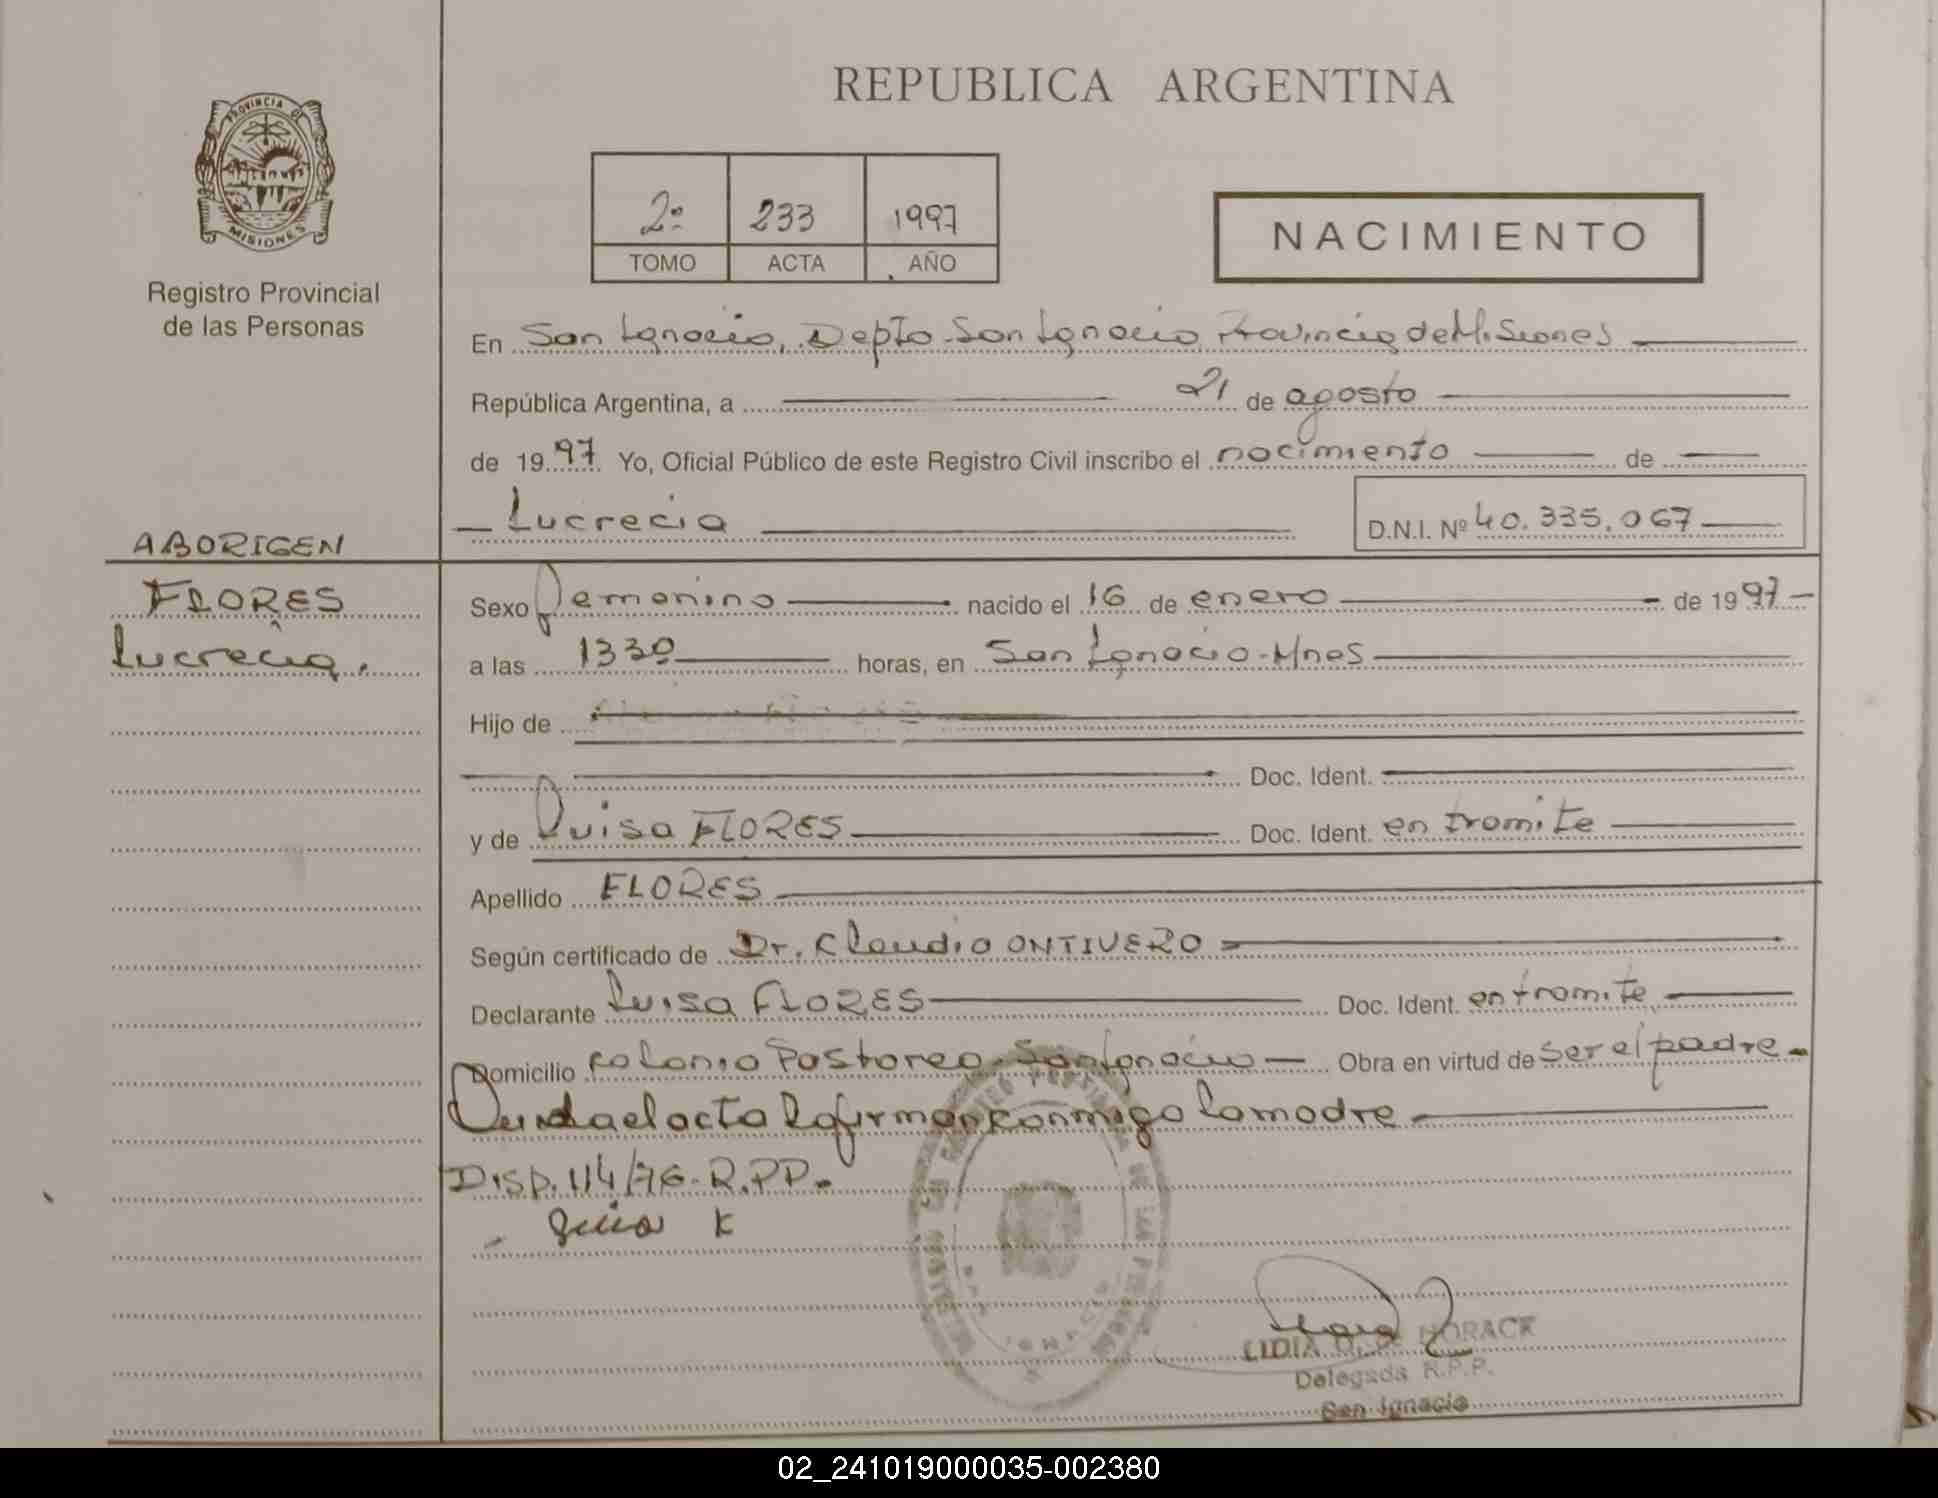 REPUBLICA ARGENTINA
PROVINCIA DE
MISIONES
Registro Provincial
de las Personas
2º 233 1997
TOMO ACTA AÑO
NACIMIENTO
En San Ignacio, Depto San Ignacio Provincia de Misiones
República Argentina, a 21 de agosto
de 1997 Yo, Oficial Público de este Registro Civil inscribo el nacimiento de
Lucrecia D.N.I. Nº 40.335.067
ABORIGEN
FLORES
Lucrecia.
Sexo Femenino nacido el 16 de enero de 1997
a las 1330 horas, en San Ignacio-Mnes
Hijo de
Doc. Ident.
y de Luisa FLORES Doc. Ident. en tramite
Apellido FLORES
Según certificado de Dr. Claudio ONTIVERO
Declarante Luisa FLORES Doc. Ident. en tramite
Domicilio Colonia Pastoreo-San Ignacio Obra en virtud de ser el padre
Leida el acta la firman conmigo la madre
Disp. 114/76-R.PP.
K
LIDIA HORACK
Delegada R.P.P.
San Ignacio
02_241019000035-002380